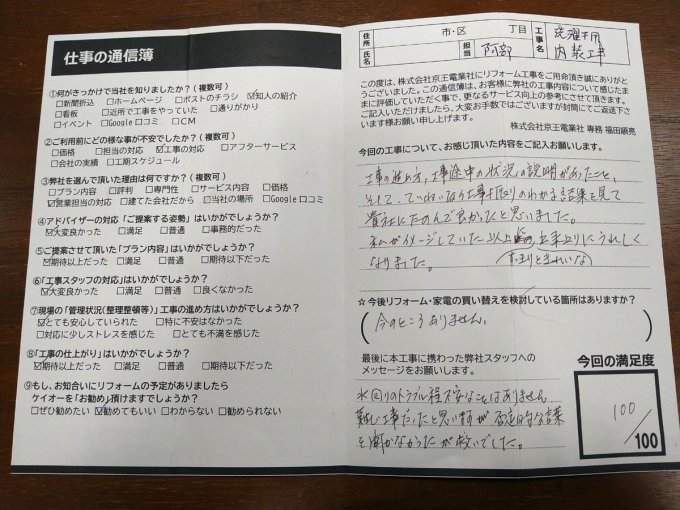 仕事の通信簿
①何がきっかけで当社を知りましたか?(複数可)
□新聞折込 □ホームページ □ポストのチラシ ☑知人の紹介
□看板 □近所で工事をやっていた □通りがかり
□イベント □Google口コミ □CM
②ご利用前にどの様な事が不安でしたか?(複数可)
□価格 □担当の対応 ☑工事の対応 □アフターサービス
□会社の実績 □工期スケジュール
③弊社を選んで頂いた理由は何ですか?(複数可)
□プラン内容 □評判 □専門性 □サービス内容 □価格
☑営業担当の対応 □建てた会社だから □当社の場所 □Google口コミ
④アドバイザーの対応「ご提案する姿勢」はいかがでしょうか?
☑大変良かった □満足 □普通 □事務的だった
⑤ご提案させて頂いた「プラン内容」はいかがでしょうか?
☑期待以上だった □満足 □普通 □期待以下だった
⑥「工事スタッフの対応」はいかがでしょうか?
☑大変良かった □満足 □普通 □良くなかった
⑦現場の「管理状況(整理整頓等)」工事の進め方はいかがでしょうか?
☑とても安心していられた □特に不安はなかった
□対応に少しストレスを感じた □とても不満を感じた
⑧「工事の仕上がり」はいかがでしょうか?
☑期待以上だった □満足 □普通 □期待以下だった
⑨もし、お知合いにリフォームの予定がありましたら
ケイオーを「お勧め」頂けますでしょうか?
□ぜひ勧めたい ☑勧めてもいい □わからない □勧められない
住所 市・区 丁目
氏名 担当 阿部
工事名 洗濯干用 内装工事
この度は、株式会社京王電業社にリフォーム工事をご用命頂き誠にありがと
うございました。この通信簿は、お客様に弊社の工事内容について感じたま
まに評価していただく事で、更なるサービス向上の参考にさせて頂きます。
ご記入いただけましたら、大変お手数ではございますが封筒にてご返送下さ
います様お願い申し上げます。
株式会社京王電業社 専務 福田順亮
今回の工事について、お感じ頂いた内容をご記入お願いします。
工事の進め方、工事途中の状況の説明があったこと、
そして、ていねいな仕事ぶりのわかる結果を見て
貴社にたのんで良かったと思いました。
私がイメージしていた以上 出来上りにうれしく
(すっきりときれいな)
なりました。
☆今後リフォーム・家電の買い替えを検討している箇所はありますか?
(今のところありません。)
最後に本工事に携わった弊社スタッフへの
メッセージをお願いします。
水回りのトラブル程不安なことはありません
難しい工事だったと思いますが 否定的な言葉
を聞かなかったが救いでした。
今回の満足度
100/100